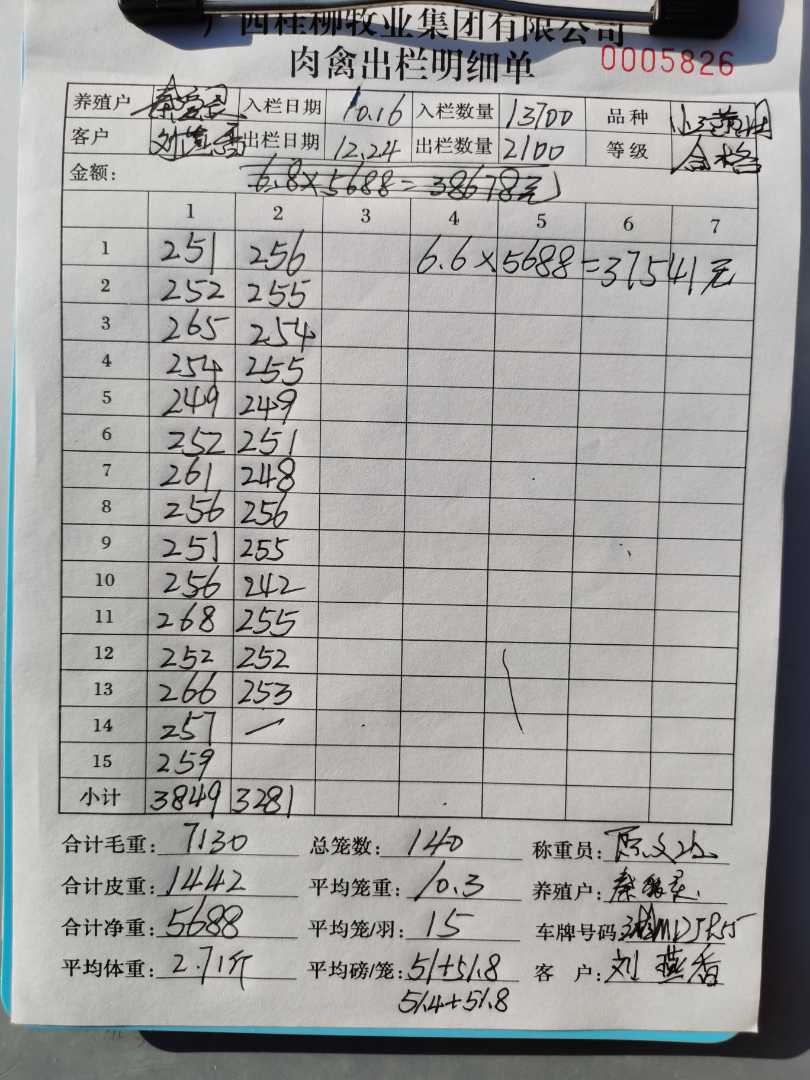 广西桂柳牧业集团有限公司
肉禽出栏明细单 0005826
养殖户 入栏日期 10.16 入栏数量 13700 品种
客户 刘燕香 出栏日期 12.24 出栏数量 2100 等级 合格
金额: 6.8×5688=38678元
1 2 3 4 5 6 7
1 251 256 6.6×5688=37541元
2 252 255
3 265 254
4 254 255
5 249 249
6 252 251
7 261 248
8 256 256
9 251 255
10 256 242
11 268 255
12 252 252
13 266 253
14 257 —
15 259
小计 3849 3281
合计毛重: 7130 总笼数: 140 称重员:
合计皮重: 1442 平均笼重: 10.3 养殖户:
合计净重: 5688 平均笼/羽: 15 车牌号码:
平均体重: 2.71斤 平均磅/笼: 51+51.8 客 户: 刘燕香
51.4+51.8